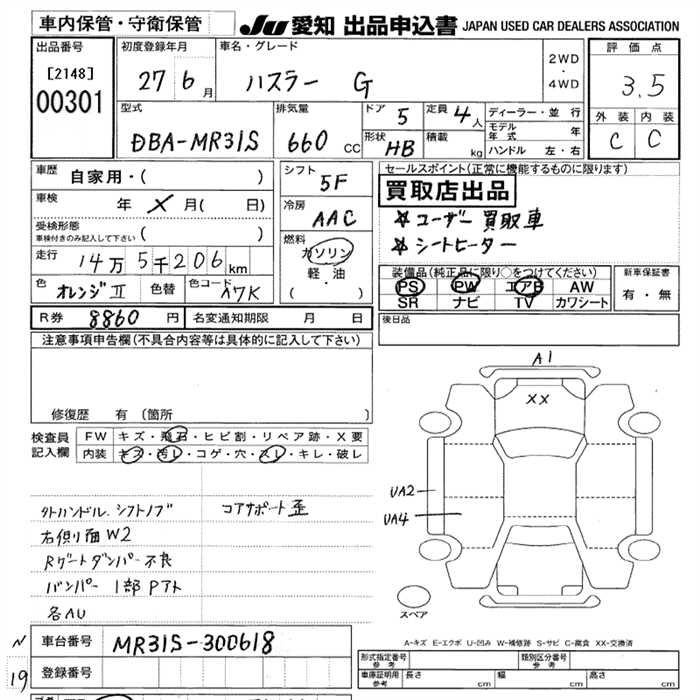 車内保管・守衛保管
JU 愛知 出品申込書 JAPAN USED CAR DEALERS ASSOCIATION
出品番号
[2148]
00301
初度登録年月
27 6月
車名・グレード
ハスラー G
2WD
・
4WD
評価点
3.5
外装 内装
C C
型式
DBA-MR31S
排気量
660 CC
ドア 5
定員 4人
形状 HB
積載 kg
ディーラー・並行
モデル年式 年
ハンドル 左・右
車歴 自家用・( )
車検 年 X 月( 日)
受検形態
車検付きのみ記入して下さい ( )
走行 14万5千206km
色 オレンジII 色替 色コード A7K
シフト
5F
冷房
AAC
燃料
ガソリン
軽・油
( ・ )
セールスポイント(正常に機能するものに限ります)
買取店出品
☆ユーザー買取車
☆シートヒーター
装備品(純正品に限り○をつけてください)
PS PW エアB AW
SR ナビ TV カワシート
新車保証書
有・無
R券 8860 円 名変通知期限 月 日
後日品
注意事項申告欄(不具合内容等は具体的に記入して下さい)
修復歴 有(箇所 )
検査員
記入欄
FW キズ・飛石・ヒビ割・リペア跡・X要
内装 キズ・汚レ・コゲ・穴・スレ・キレ・破レ
タトハンドル.シフトノブ コアサポート歪
右側面W2
Rゲートダンパー不良
バンパー 1部Pアト
各AU
A1
XX
UA2
UA4
スペア
A-キズ E-エクボ U-凹み W-補修跡 S-サビ C-腐食 XX-交換済
N 車台番号 MR31S-300618
19 登録番号
形式指定番号
参考
類別区分番号
参考
車庫証明用
参考
長さ cm 幅 cm 高さ cm